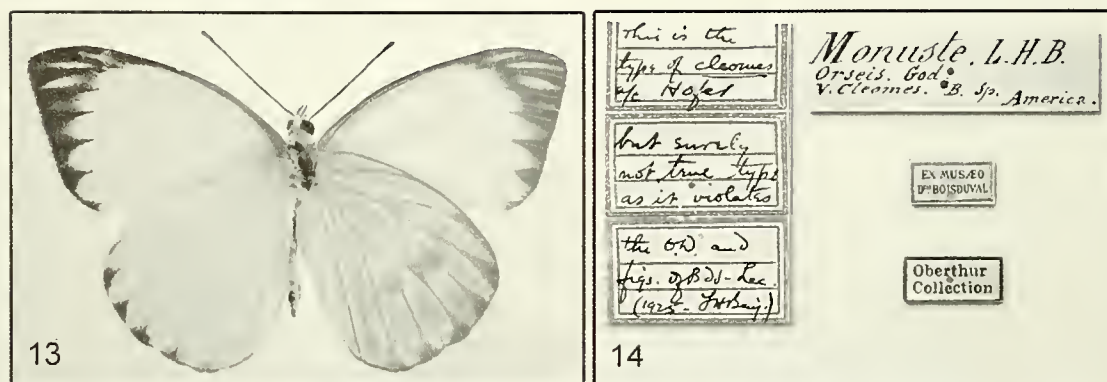 13
This is the
type of cleomes
a/c Hofer
but surely
not true type
as it violates
the O.D. and
figs. of Bds-Lec.
(1925-
Monuste. L.H.B.
Orseis. God.
V. Cleomes. B. Sp.
America.
EX MUSÆO
Dris BOISDUVAL
Oberthur
Collection
14